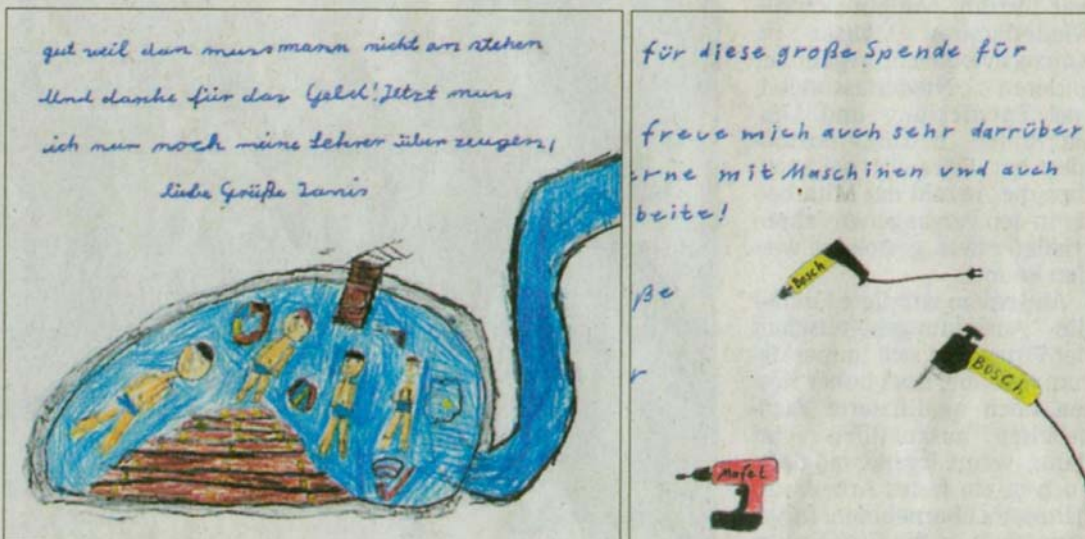 gut weil dan mussmann nicht an stehen
Und danke für das Geld! Jetzt muss
ich nur noch meine Lehrer über zeugen,
liebe Grüße Janis
für diese große Spende für
freue mich auch sehr darrüber
erne mit Maschinen und auch
beite!
ße
r
Bosch
Bosch
MafeL